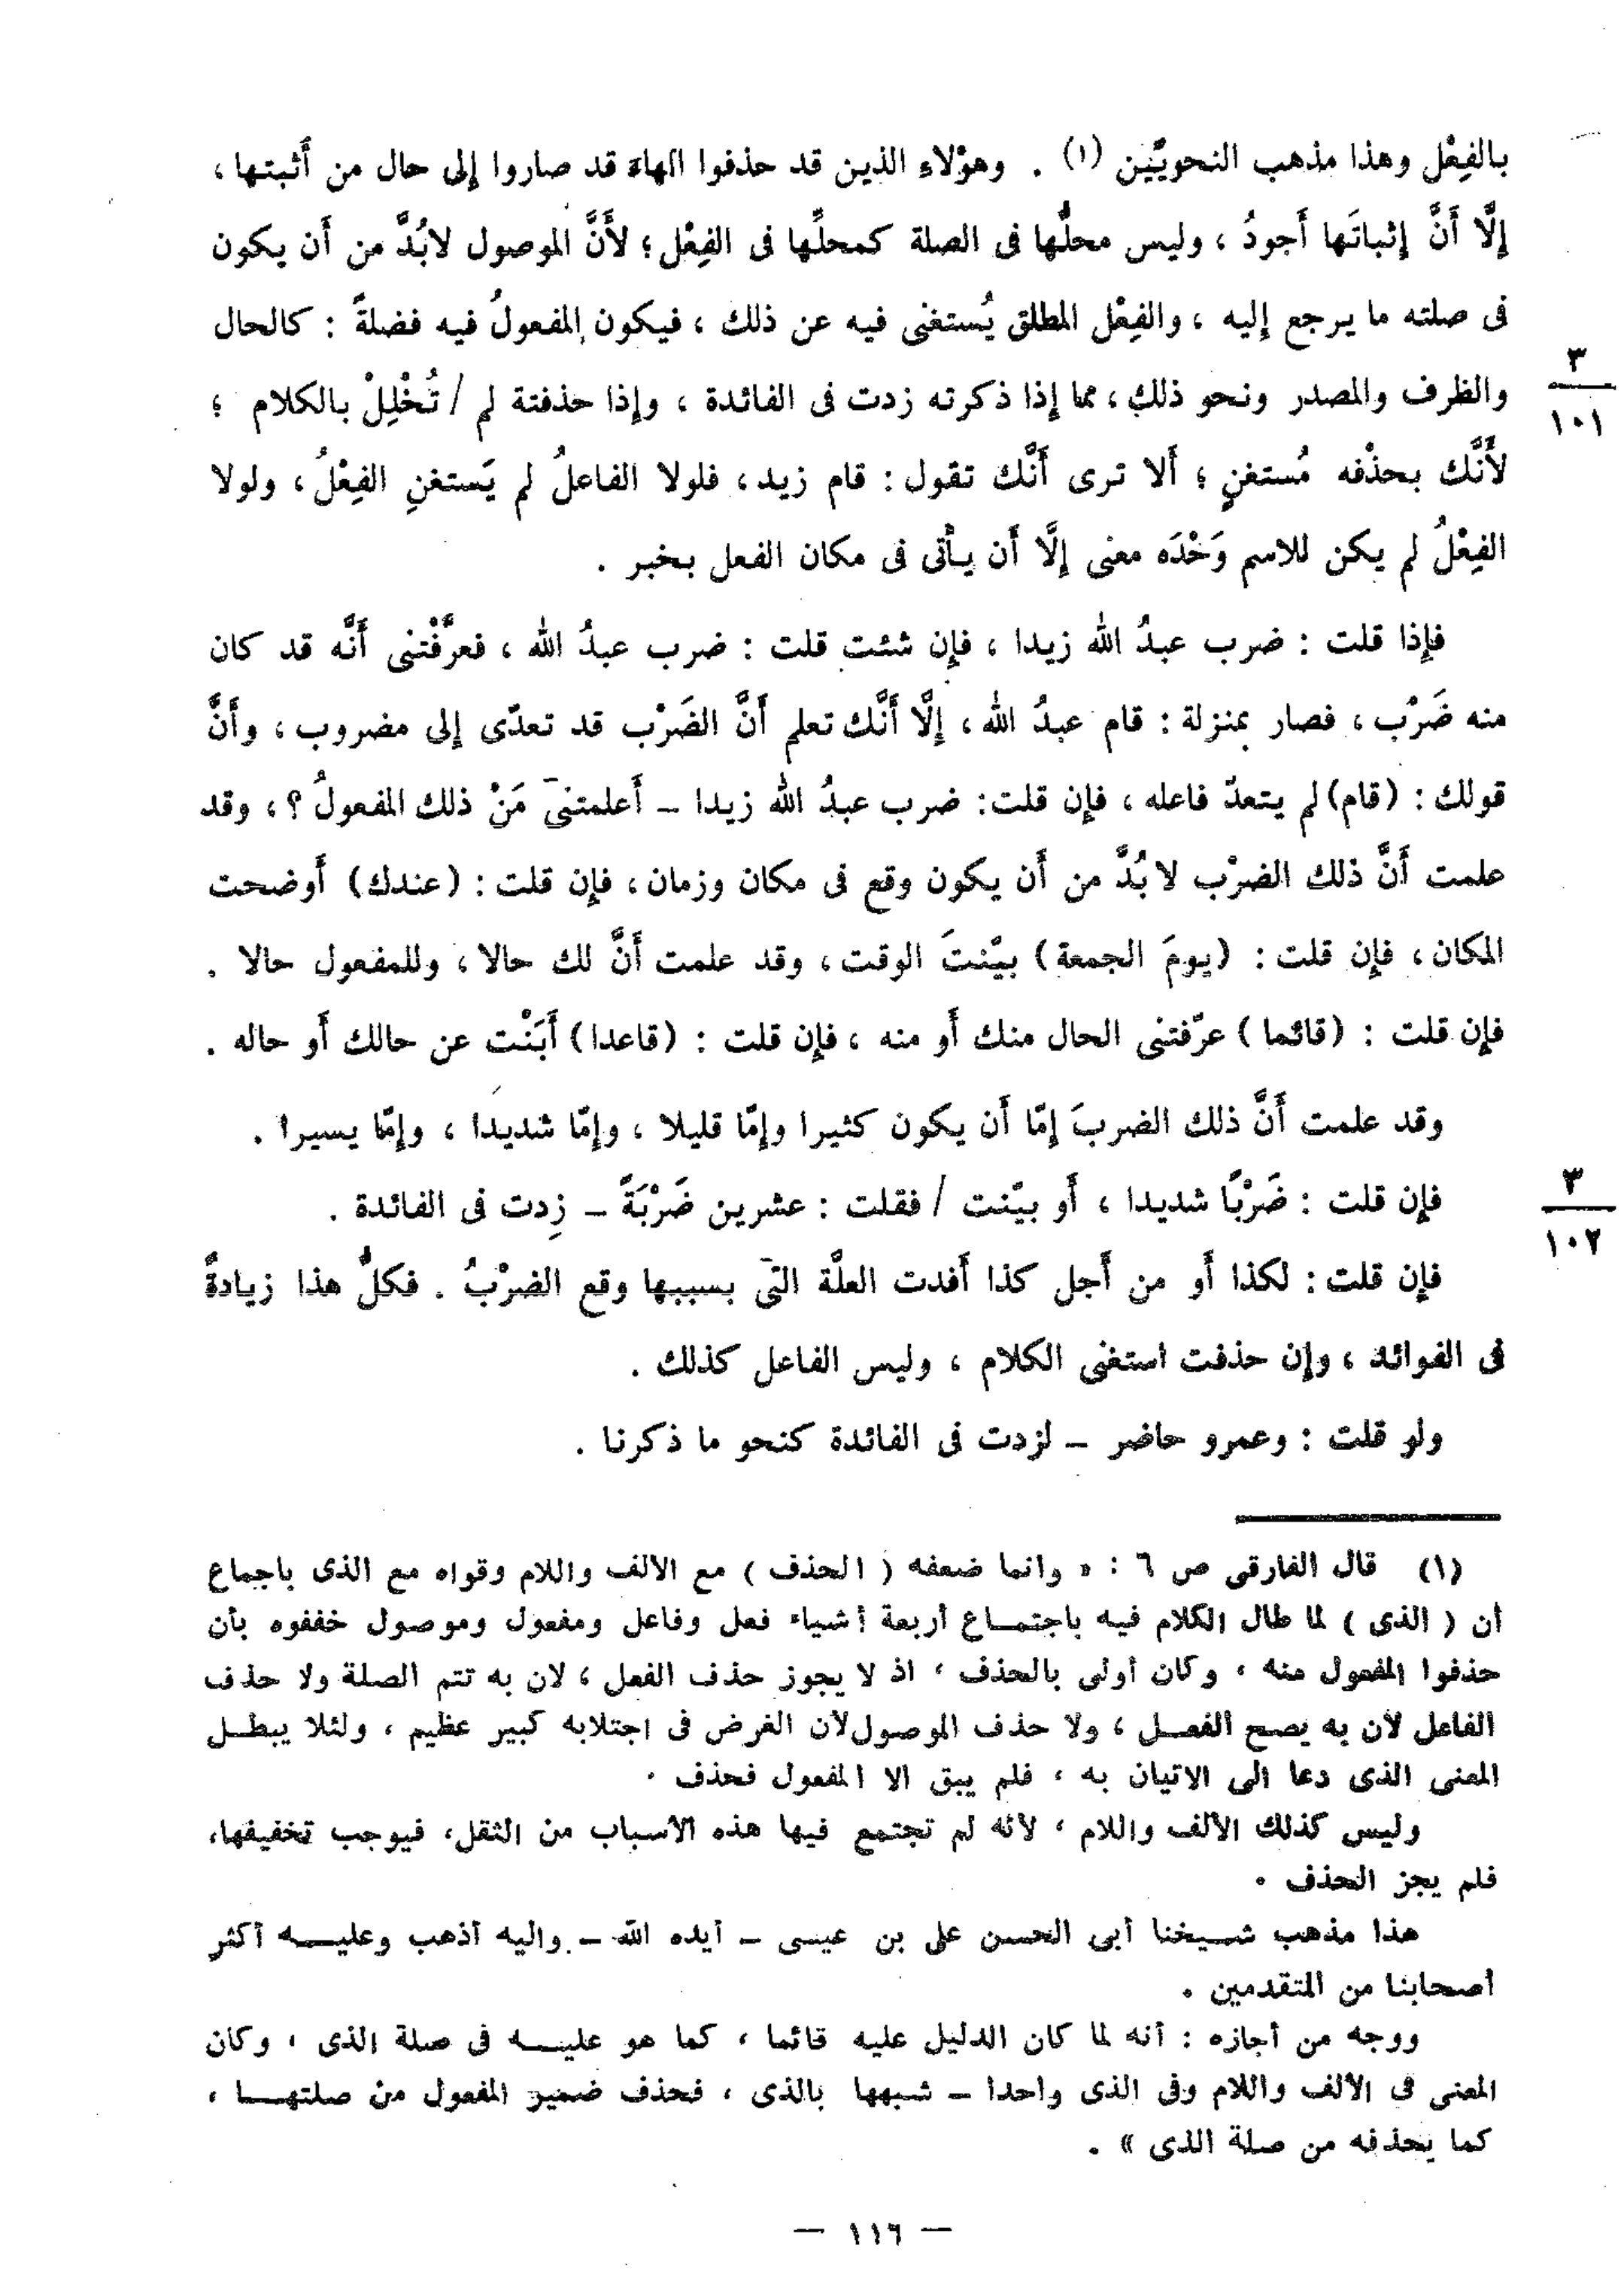 بالفِعْل وهذا مذهب النحويّين (١) . وهؤلاءِ الذين قد حذفوا الهاءَ قد صاروا إلى حال من أَثبتها ،
إلَّا أَنَّ إثباتَها أَجودُ ، وليس محلُّها فى الصلة كمحلِّها فى الفِعْل ؛ لأَنَّ الموصول لابُدَّ من أَن يكون
فى صلته ما يرجع إليه ، والفِعْل المطلق يُستغنى فيه عن ذلك ، فيكون المفعولُ فيه فضلةً : كالحال
٣
١٠١
والظرف والمصدر ونحو ذلك ، مما إذا ذكرته زدت فى الفائدة ، وإذا حذفتة لم / تُخْلِلْ بالكلام ؛
لأَنَّك بحذْفه مُستغنٍ ؛ أَلا ترى أَنَّك تقول : قام زيد ، فلولا الفاعلُ لم يَستغنِ الفِعْلُ ، ولولا
الفِعْلُ لم يكن للاسم وَحْدَه معنى إلَّا أَن يأْتى فى مكان الفعل بخبر .
فإذا قلت : ضرب عبدُ الله زيدا ، فإن شئت قلت : ضرب عبدُ الله ، فعرَّفْتنى أَنَّه قد كان
منه ضَرْب ، فصار بمنزلة : قام عبدُ الله ، إلَّا أَنَّك تعلم أَنَّ الضَرْب قد تعدّى إلى مضروب ، وأَنَّ
قولك : (قام) لم يتعدّ فاعله ، فإن قلت : ضرب عبدُ الله زيدا – أَعلمتنى مَنْ ذلك المفعولُ ؟ ، وقد
علمت أَنَّ ذلك الضرْب لابُدَّ من أَن يكون وقع فى مكان وزمان ، فإن قلت : (عندك) أَوضحت
المكان ، فإن قلت : (يومَ الجمعة) بيّنتَ الوقت ، وقد علمت أَنَّ لك حالا ، وللمفعول حالا .
فإن قلت : (قائما) عرّفتنى الحال منك أَو منه ، فإن قلت : (قاعدا) أَبَنْت عن حالك أَو حاله .
وقد علمت أَنَّ ذلك الضربَ إمّا أَن يكون كثيرا وإمّا قليلا ، وإمّا شديدا ، وإمّا يسيرا .
٣
١٠٢
فإن قلت : ضَرْبًا شديدا ، أَو بيّنت / فقلت : عشرين ضَرْبَةً – زِدت فى الفائدة .
فإن قلت : لكذا أَو من أَجل كذا أَفدت العلَّة التى بسببها وقع الضرْبُ . فكلُّ هذا زيادةً
فى الفوائد ، وإن حذفت استغنى الكلام ، وليس الفاعل كذلك .
ولو قلت : وعمرو حاضر – لزدت فى الفائدة كنحو ما ذكرنا .
(١) قال الفارقى ص ٦ : « وانما ضعفه ( الحذف ) مع الألف واللام وقواه مع الذى باجماع
أن ( الذى ) لما طال الكلام فيه باجتماع أربعة أشياء فعل وفاعل ومفعول وموصول خففوه بأن
حذفوا المفعول منه ، وكان أولى بالحذف ، اذ لا يجوز حذف الفعل ، لان به تتم الصلة ولا حذف
الفاعل لأن به يصح الفعل ، ولا حذف الموصول لأن الغرض فى اجتلابه كبير عظيم ، ولئلا يبطل
المعنى الذى دعا الى الاتيان به ، فلم يبق الا المفعول فحذف .
وليس كذلك الألف واللام ، لأنه لم تجتمع فيها هذه الأسباب من الثقل ، فيوجب تخفيفها ،
فلم يجز الحذف .
هذا مذهب شيخنا أبى الحسن على بن عيسى – أيده الله – واليه أذهب وعليه أكثر
أصحابنا من المتقدمين .
ووجه من أجازه : أنه لما كان الدليل عليه قائما ، كما هو عليه فى صلة الذى ، وكان
المعنى فى الألف واللام وفى الذى واحدا – شبهها بالذى ، فحذف ضمير المفعول من صلتها ،
كما يحذفه من صلة الذى » .
– ١١٦ –